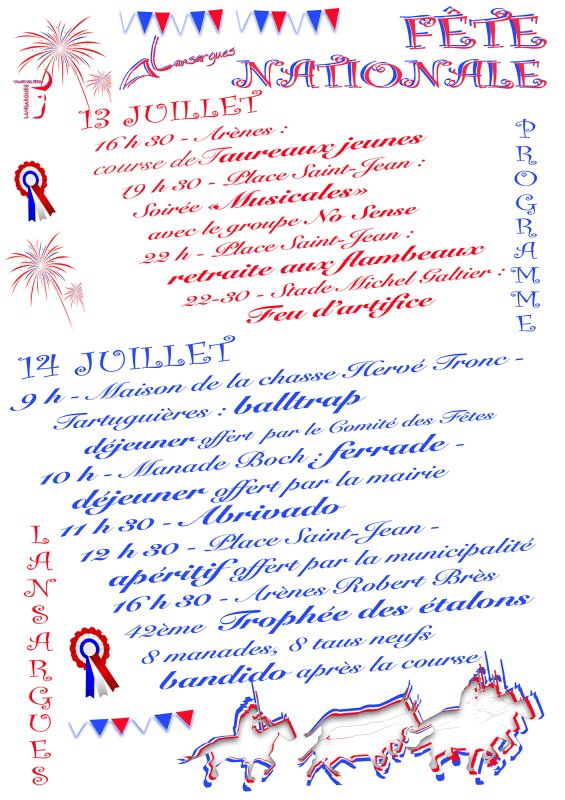 Lansargues
FÊTE
NATIONALE
PROGRAMME
13 JUILLET
16 h 30 - Arènes :
course de Taureaux jeunes
19 h 30 - Place Saint-Jean :
Soirée «Musicales»
avec le groupe No Sense
22 h - Place Saint-Jean :
retraite aux flambeaux
22-30 - Stade Michel Galtier :
Feu d'artifice
14 JUILLET
9 h - Maison de la chasse Hervé Tronc -
Tartuguières : balltrap
déjeuner offert par le Comité des Fêtes
10 h - Manade Boch : ferrade -
déjeuner offert par la mairie
11 h 30 - Abrivado
12 h 30 - Place Saint-Jean -
apéritif offert par la municipalité
16 h 30 - Arènes Robert Brès
42ème Trophée des étalons
8 manades, 8 taus neufs
bandido après la course
LANSARGUES